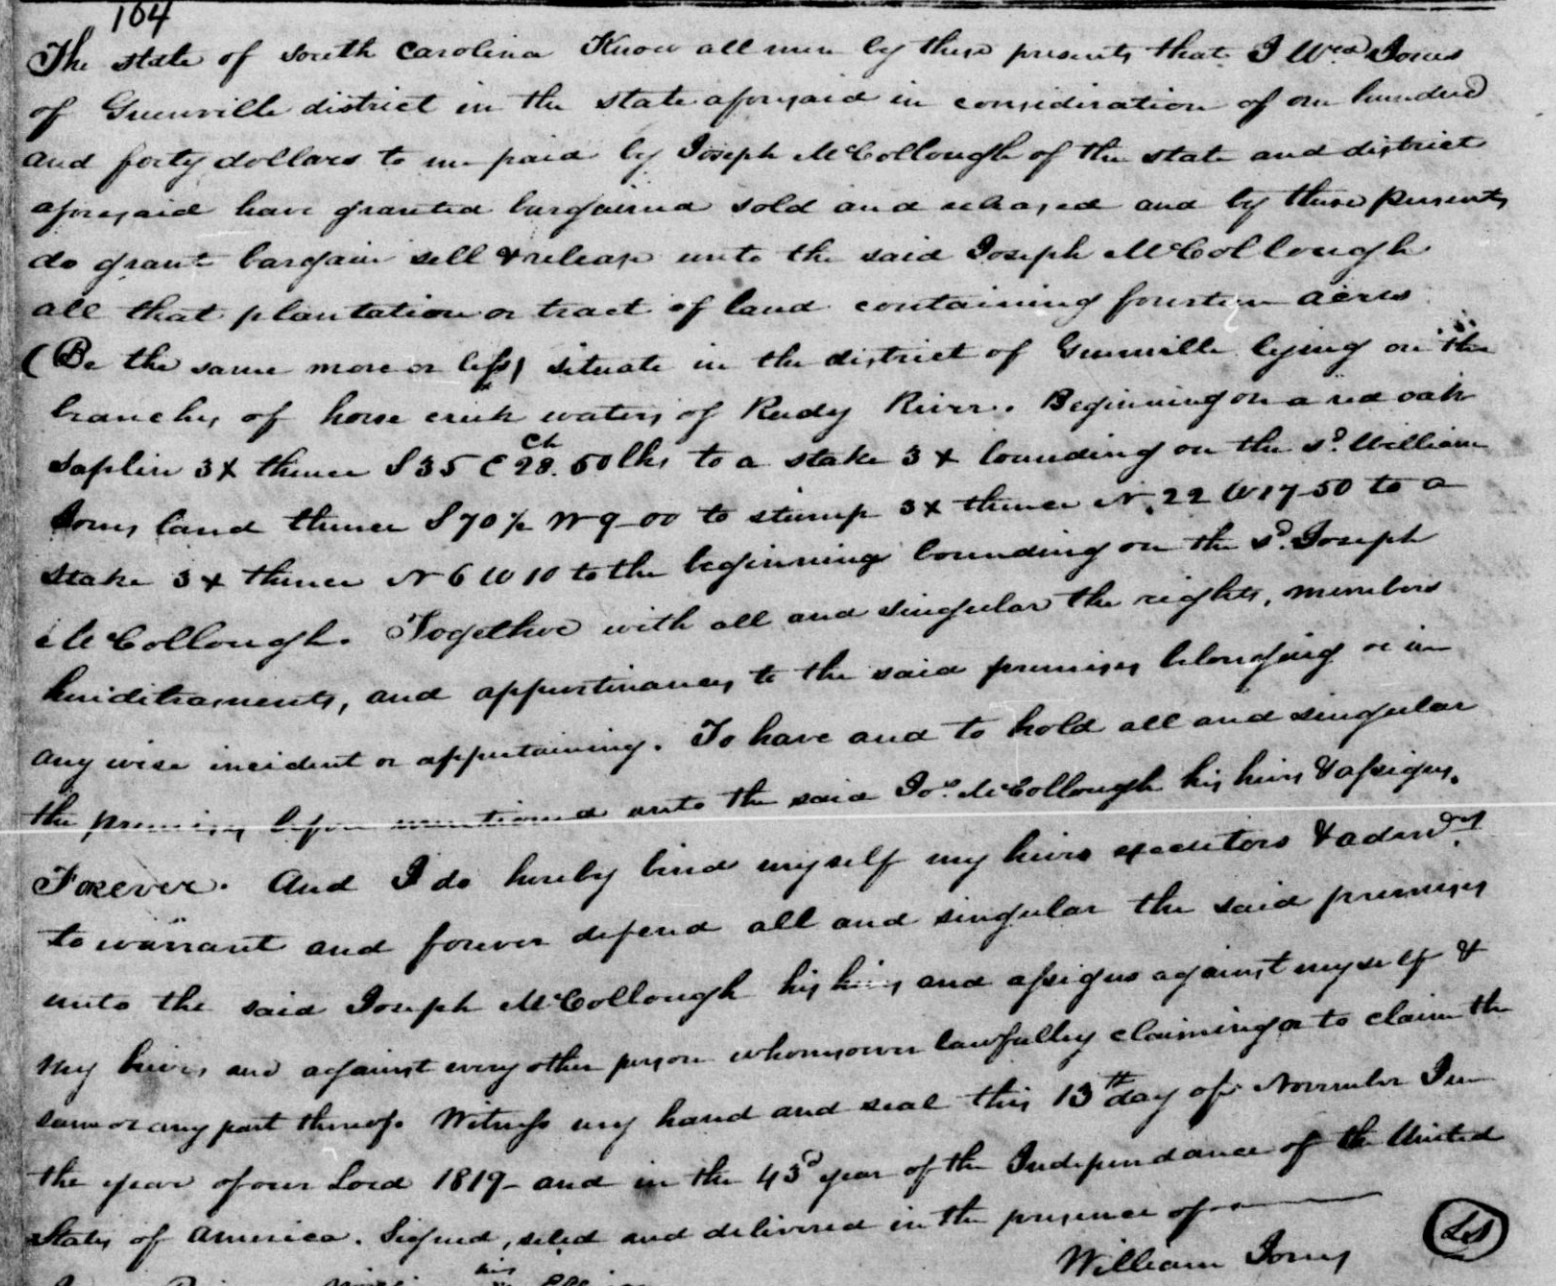 104
The state of South Carolina Know all men by these presents that I Wm Jones
of Greenville district in the state aforesaid in consideration of one hundred
and forty dollars to me paid by Joseph McCollough of the state and district
aforesaid have granted bargained sold and released and by these presents
do grant bargain sell & release unto the said Joseph McCollough
all that plantation or tract of land containing fourteen acres
(Be the same more or less) situate in the district of Greenville lying on the
branches of horse creek waters of Reedy River. Beginning on a red oak
Saplin 3X thence S 35 E 28. Ch 50 lks to a stake 3X bounding on the sd. William
Jones land thence S 70½ W 9-00 to stump 3X thence N. 22 W 17-50 to a
stake 3X thence N 6 W 10 to the beginning bounding on the sd. Joseph
McCollough. Together with all and singular the rights, members
hereditraments, and appurtinances to the said premises belonging or in
any wise incident or appertaining. To have and to hold all and singular
the premises before mentioned unto the said Jos. McCollough his heirs & assigns.
Forever. And I do hereby bind myself my heirs executors & admrs.
to warrant and forever defend all and singular the said premises
unto the said Joseph McCollough his heirs and assigns against myself &
my heirs and against every other person whomsoever lawfully claiming or to claim the
same or any part thereof. Witness my hand and seal this 13th day of November In
the year of our Lord 1819- and in the 43d year of the Independance of the United
States of America. Signed, seled and delivered in the presence of
William Jones LS
his